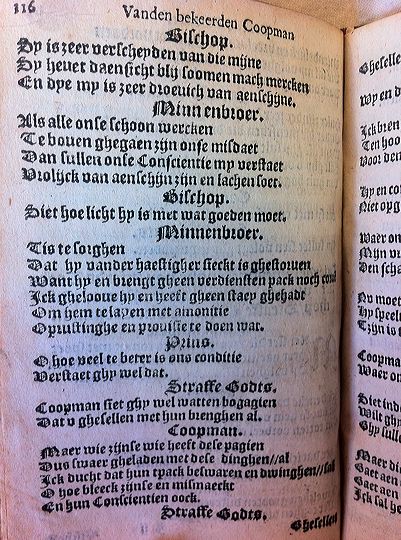 116
Vanden bekeerden Coopman
Bischop.
Hy is zeer verscheyden van die mijne
Hy heuet daensicht blij soomen mach mercken
En dye my is zeer droeuich van aenschijne.
Minnenbroer.
Als alle onse schoon wercken
Te bouen ghegaen zijn onse misdaet
Dan sullen onse Conscientie my verstaet
Vrolijck van aenschijn zijn en lachen soet.
Bischop.
Siet hoe licht hy is met wat goeden moet.
Minnenbroer.
Tis te sorghen
Dat hy vander haestigher sieckt is ghestoruen
Want hy en brengt gheen verdiensten pack noch
Ick gheloove hy en heeft gheen staep ghehadt
Om hem te lapen met amonitie
Oprustinghe en prouisie te doen wat.
Prius.
O hoe veel te beter is ons conditie
Verstaet ghy wel dat.
Straffe Godts.
Coopman siet ghy wel watten bogagien
Dat v ghesellen met hun brenghen al.
Coopman.
Maer wie zijnse wie heeft dese pagien
Dus swaer gheladen met dese dinghen//al
Ick ducht dat hun tpack beswaren en dwinghen//sal
O hoe bleeck zijnse en mismaeckt
En hun Conscientien oock.
Straffe Godts.
Ghesellen
Ghesellen
Wy en d
Ick bren
Ten hoo
Voor den
Hy en co
Niet opg
Waer on
Mijn vr
Den scha
Nu moet
Hy speelt
Tzijn is t
Coopma
Waer on
Siet inde
Wilt ghy
Ghy sulle
Maer die
Gaet aen
Gaet aen
Ick sal he